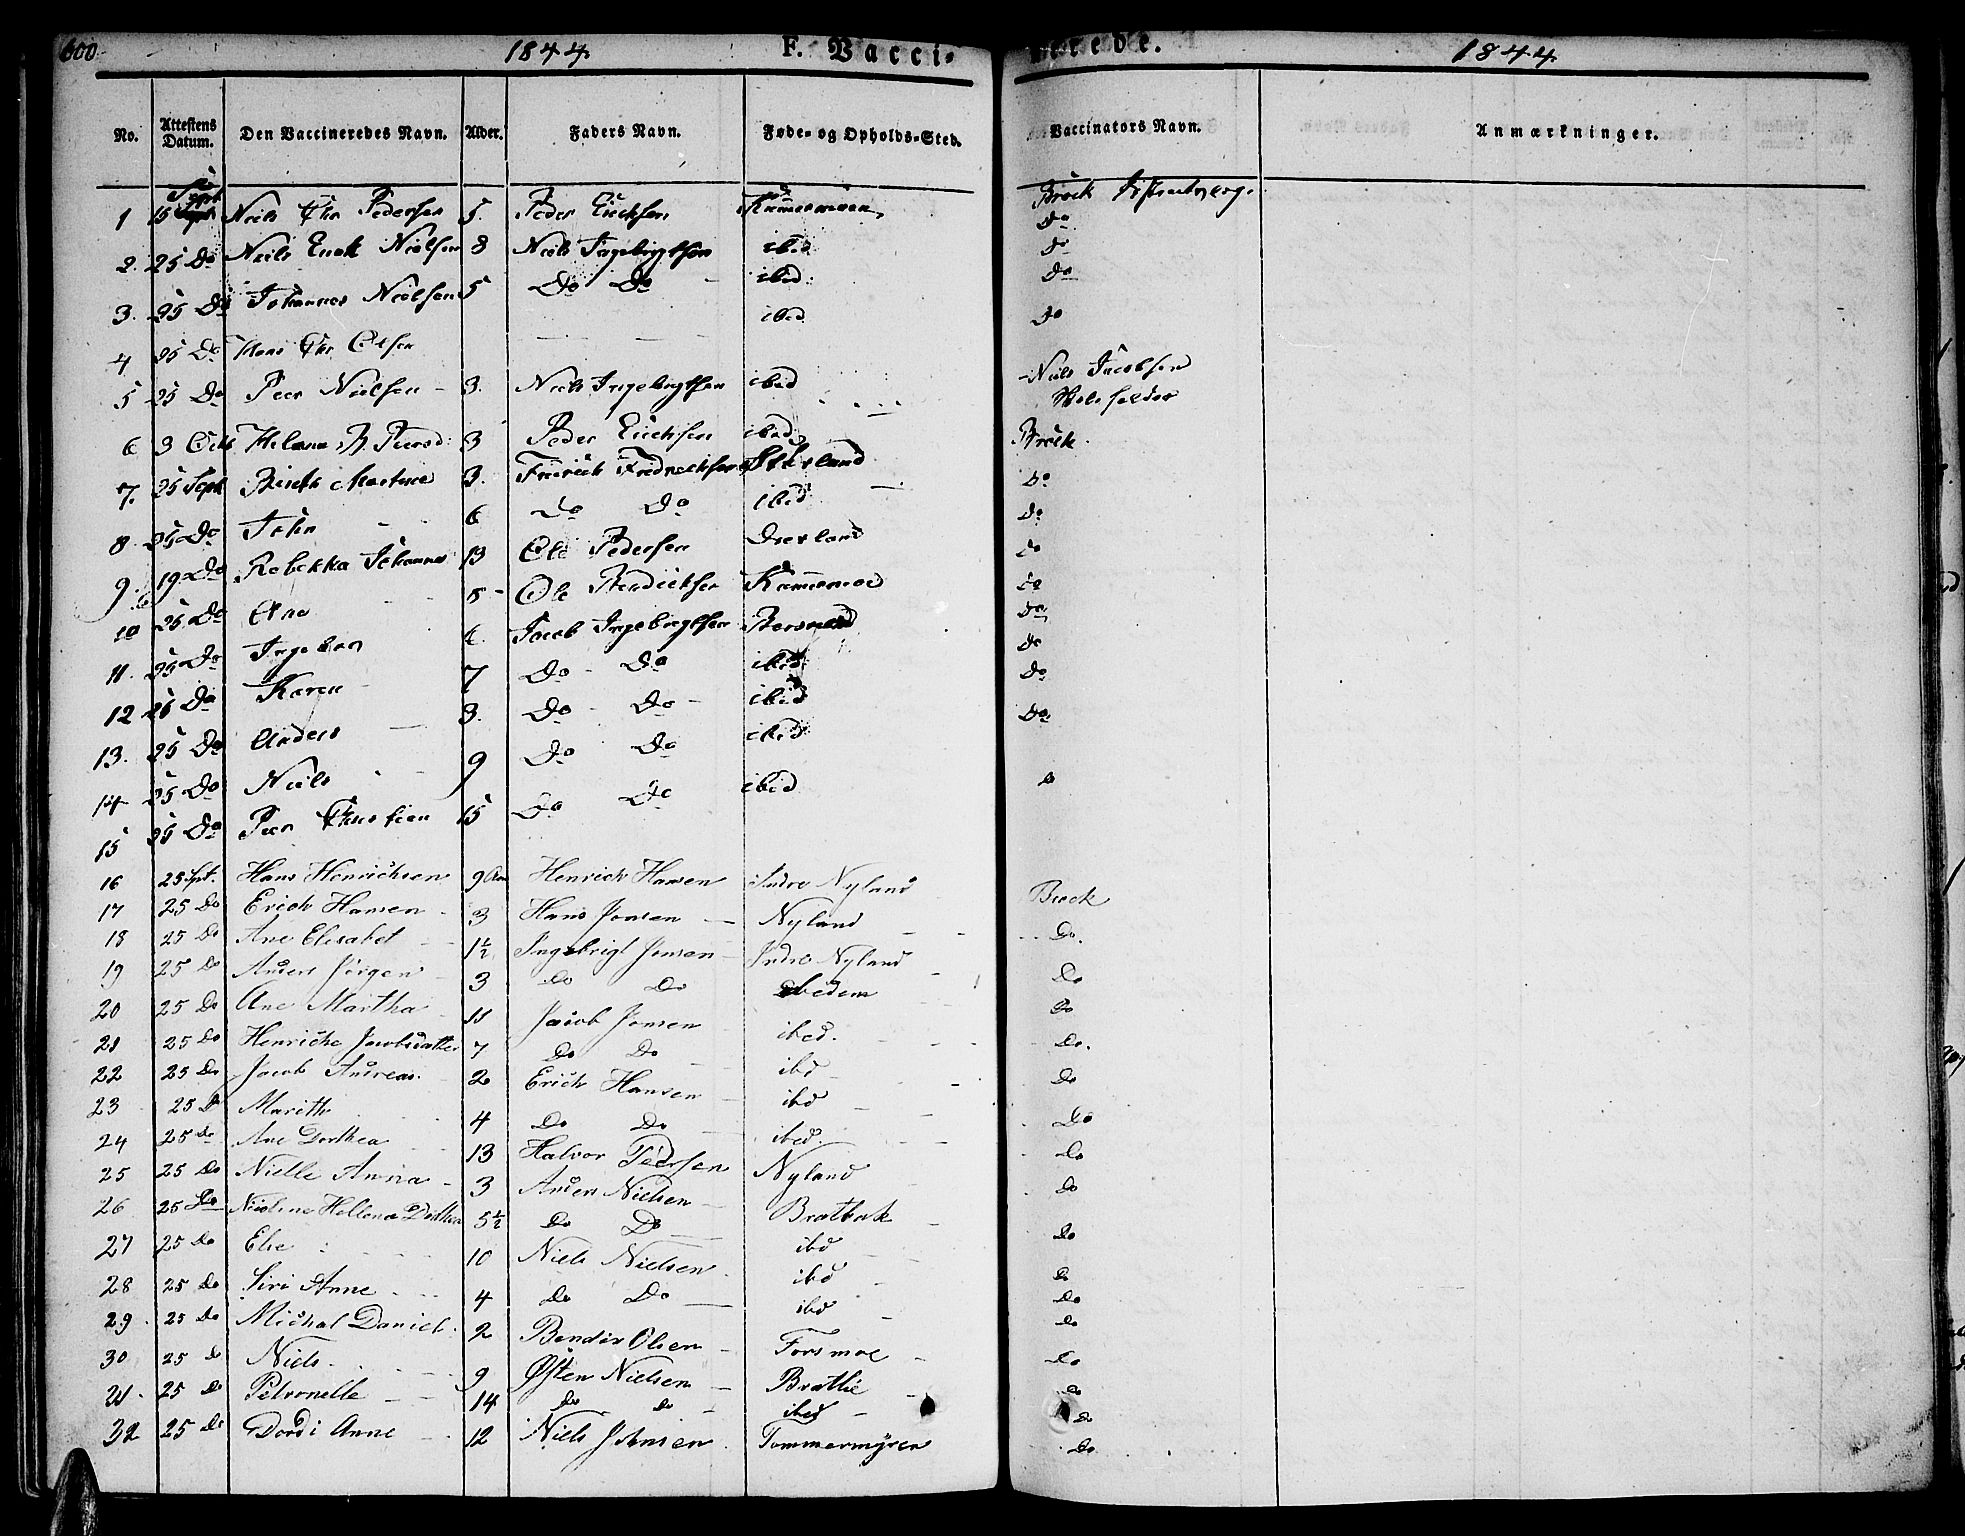 600 1844 F. Vacci- nerede. 1844
No. Attestens Datum. Den Vaccineredes Navn. Alder. Faders Navn. Føde- og Opholds-Sted. Vaccinators Navn. Anmærkninger.
1 15 Sept Niels Chr Pedersen 5. Peder Erichsen Brock
2. 25 Do Niels Enok Nielsen 8 Niels Ingebrigtsen ibid Do
3. 25 Do Johannes Nielsen 5 Do Do ibid Do
4 25 Do Hans Chr Olsen ibid Do
5 25 Do Peer Nielsen 3. Niels Ingebrigtsen ibid Niels Jacobsen
6 3 Octb Helena B. 3 Peder Erichsen ibid Brock
7. 25 Sept Birith Martine 3. Fredrich Fredrechsen Do
8 25 Do John 6 Do Do ibid Do
9. 19 Do Rebekka Johanna 13 Ole Pedersen Drevland Do
10 25 Do Ane 8 Ole Bendichsen Do
11. 25 Do Ingebor 6. Jacob Ingebrigtsen Do
12 26 Do Karen 7 Do Do ibid Do
13. 25 Do Anders 3. Do Do ibid Do
14 25 Do Niels 9 Do Do ibid Do
15 25 Do Peer Christian 15 Do Do ibid
16 25 Spt. Hans Henrichsen 9 Aar Henrich Hansen Indre Nyland Brock
17 25 Do Erich Hansen 3 Hans Jonsen Nyland Do.
18 25 Do Ane Elisabet 1½ Ingebrigt Jonsen Indre Nyland Do
19 25 Do Anders Jørgen 3 Do Do ibedem Do
20 25 Do Ane Martha 11 Jacob Jonsen ibed. Do.
21 25 Do Henriche Jacobsdatter 7 Do Do ibd Do
22 25 Do Jacob Andreas 2 Erich Hansen ibd Do
23 25 D Marith 4 Do Do ibed. Do
24 25 Do Ane Dorthea 13 Halvor Pedersen Nyland Do
25 25 Do Nielle Anna 3 Anders Nielsen Bratbak Do
26 25 Do Nicoline Hellena Dorthea 5½ Do Do ibd Do
27 25 Do Else 10 Niels Nielsen ibd Do
28 25 Do Siri Anne 4 Do Do ibd Do
29. 25 Do Michal Daniel 2 Bendix Olsen Forsmoe Do
30 25 Do Niels 9 Østen Nielsen Bratlie Do
31. 25 Do Petronelle 14 Do Do ibed Do
32 25 Do Dordi Anne 12 Niels Johnsen Tommermyren Do